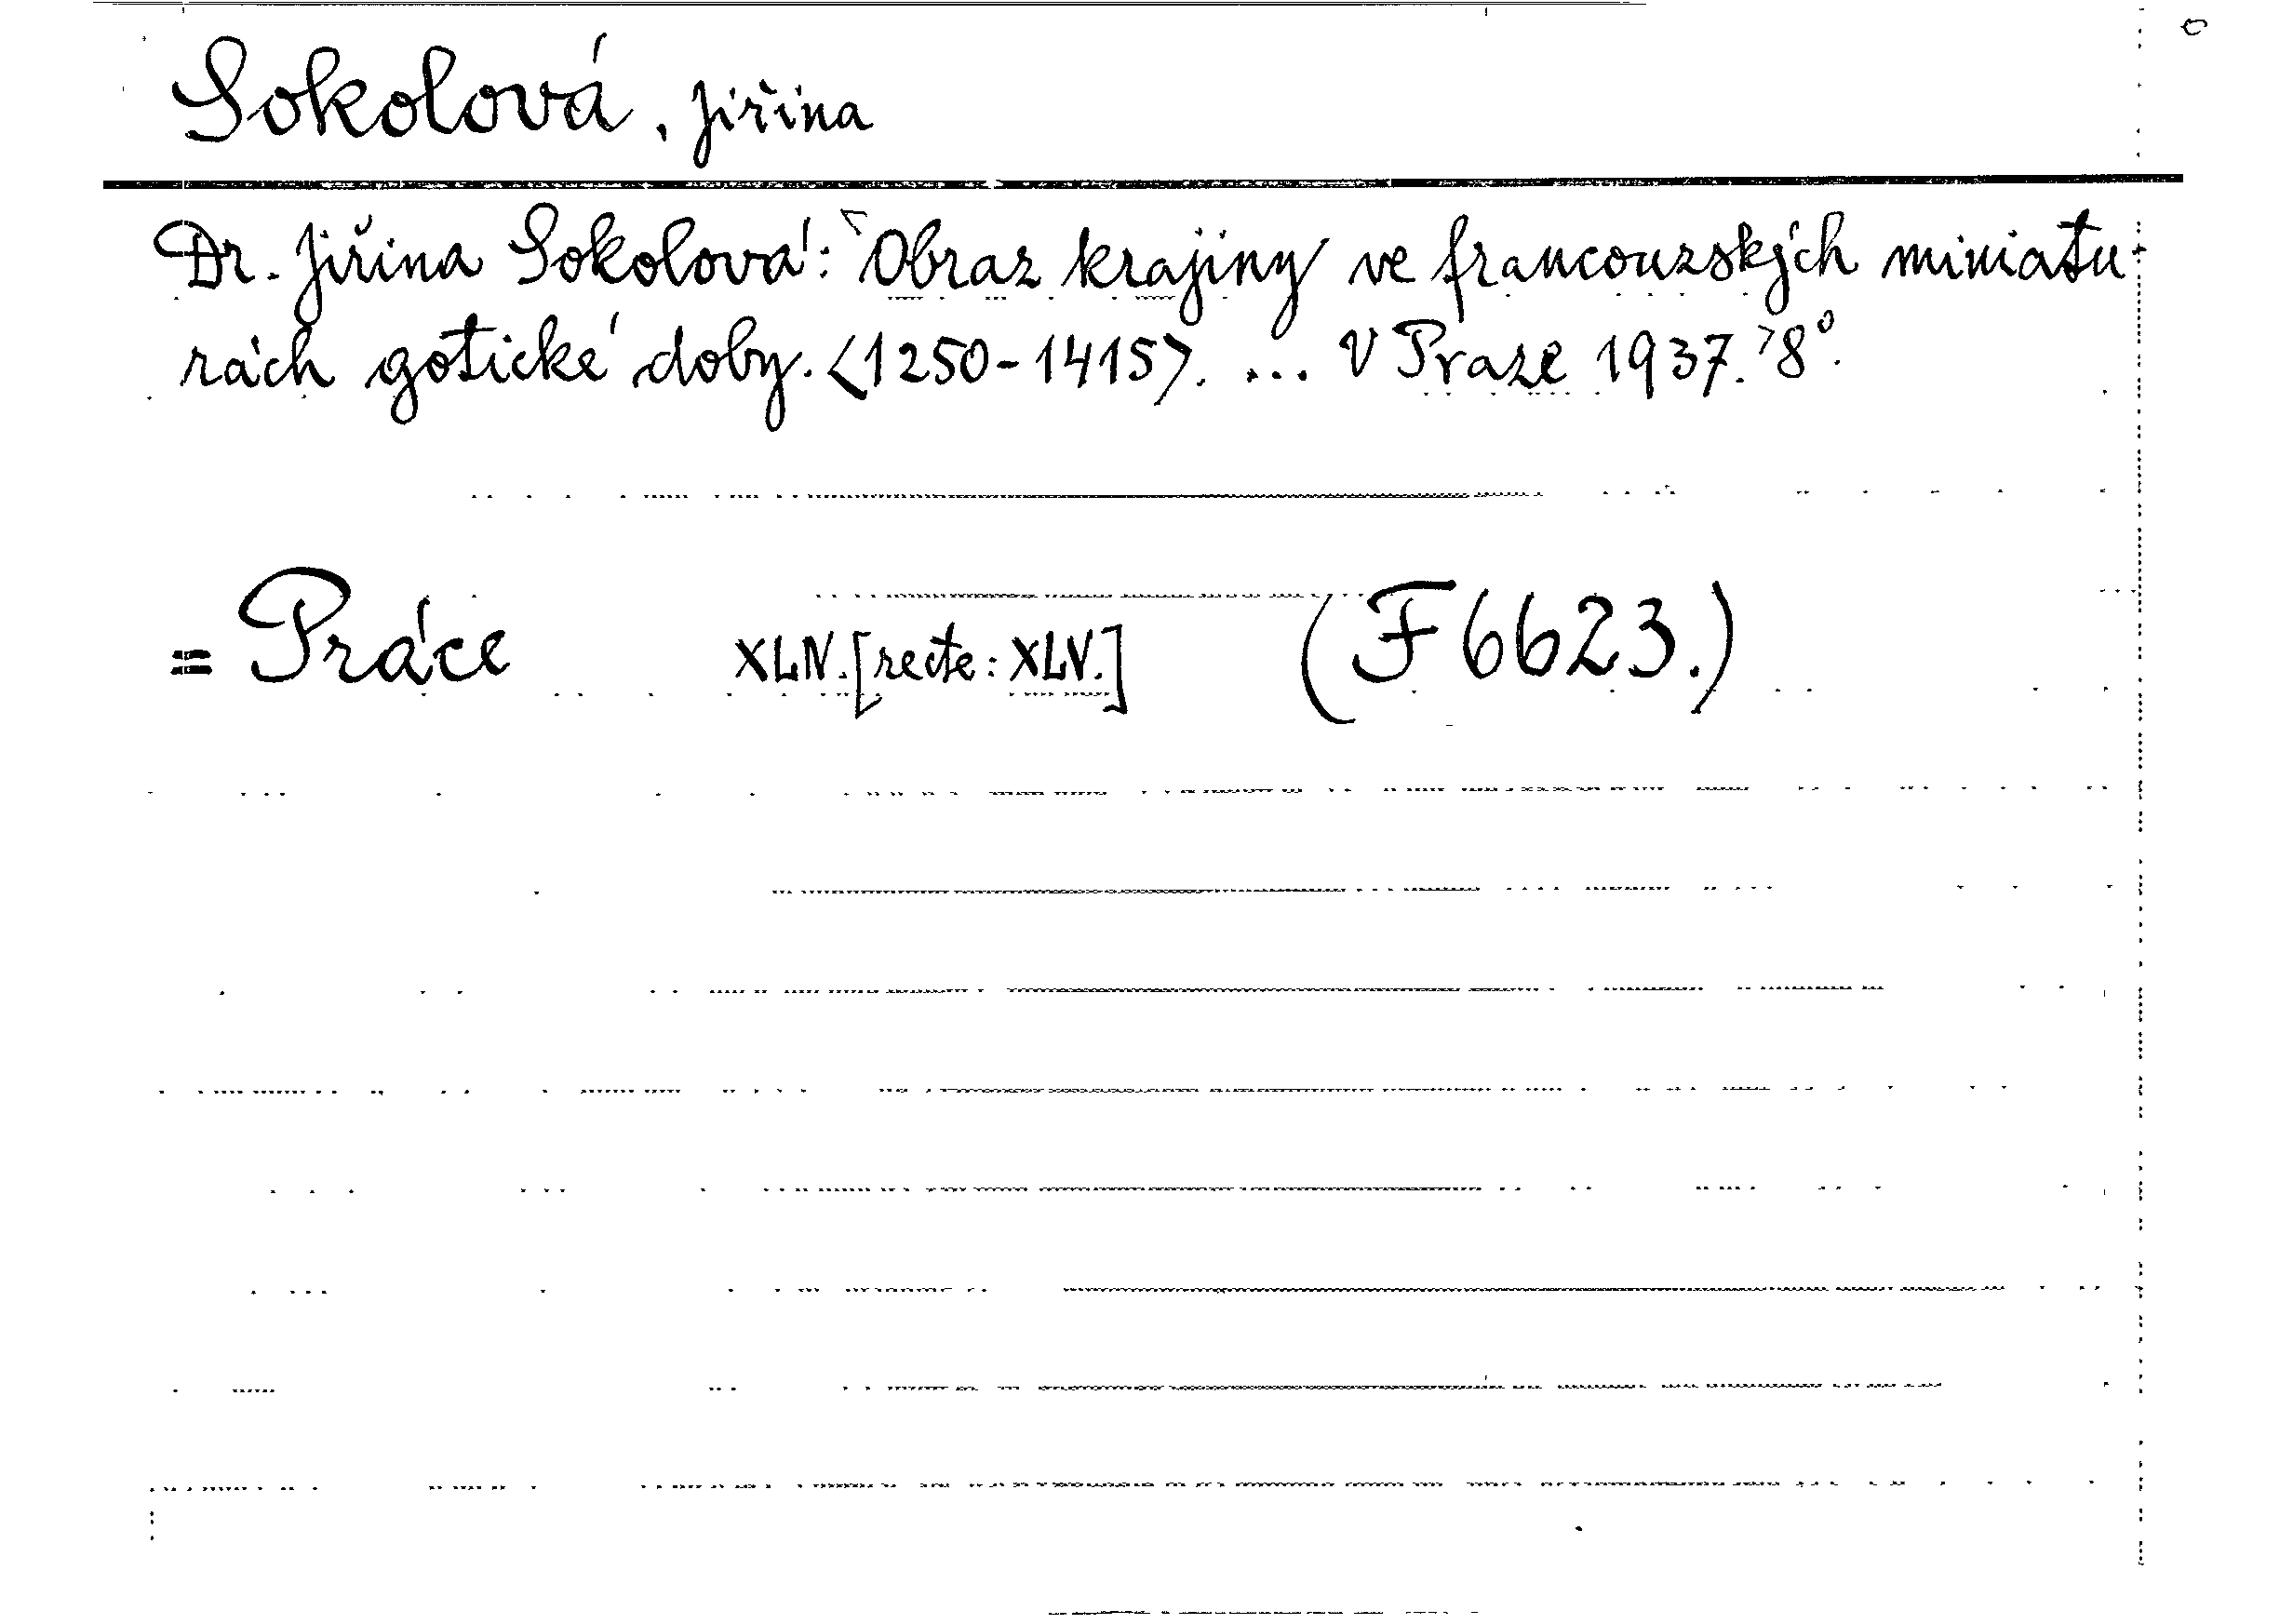 Sokolová, Jiřina
Dr. Jiřina Sokolová: Obraz krajiny ve francouzských miniatu-
rách gotické doby. <1250-1415>. ... V Praze 1937. 8°.
= Práce XLIV. [recte: XLV.] (F 6623.)